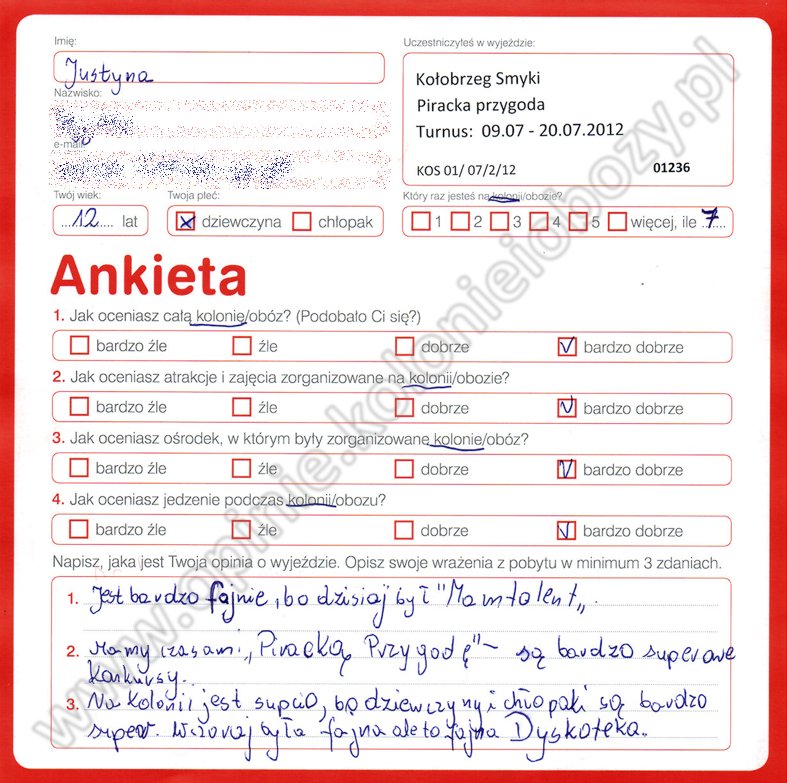 Imię:
Uczestniczyłeś w wyjeździe:
Justyna
Kołobrzeg Smyki
Piracka przygoda
Turnus: 09.07 - 20.07.2012
KOS 01/ 07/2/12 01236
Nazwisko:
e-mail:
Twój wiek:
Twoja płeć:
Który raz jesteś na kolonii/obozie?
...12.... lat
dziewczyna
chłopak
1 2 3 4 5 więcej, ile 7
Ankieta
1. Jak oceniasz całą kolonię/obóz? (Podobało Ci się?)
bardzo źle źle dobrze bardzo dobrze
2. Jak oceniasz atrakcje i zajęcia zorganizowane na kolonii/obozie?
bardzo źle źle dobrze bardzo dobrze
3. Jak oceniasz ośrodek, w którym były zorganizowane kolonie/obóz?
bardzo źle źle dobrze bardzo dobrze
4. Jak oceniasz jedzenie podczas kolonii/obozu?
bardzo źle źle dobrze bardzo dobrze
Napisz, jaka jest Twoja opinia o wyjeździe. Opisz swoje wrażenia z pobytu w minimum 3 zdaniach.
1. Jest bardzo fajnie, bo dzisiaj był "Mam talent„.
2. Mamy czasami „Piracką Przygodę"- są bardzo superowe
konkursy.
3. Na kolonii jest supcio, bo dziewczyny i chłopaki są bardzo
super. Wczoraj była fajna ale to fajna Dyskoteka.
www.opinie.kolonieiobozy.pl